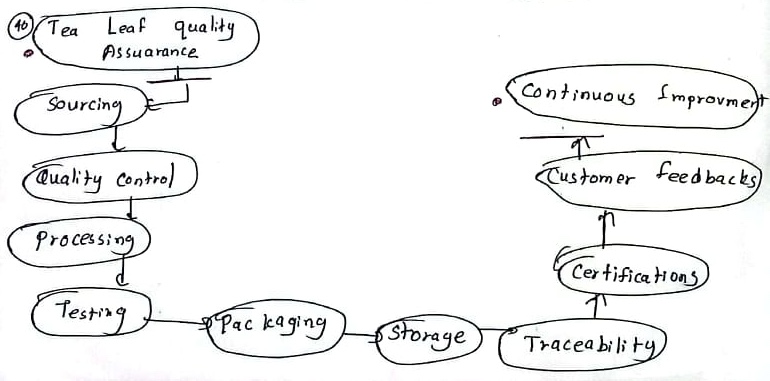 40
Tea Leaf quality
Assuarance
Sourcing
Quality Control
Processing
Testing
Packaging
Storage
Traceability
Certifications
Customer feedbacks
Continuous Improvment